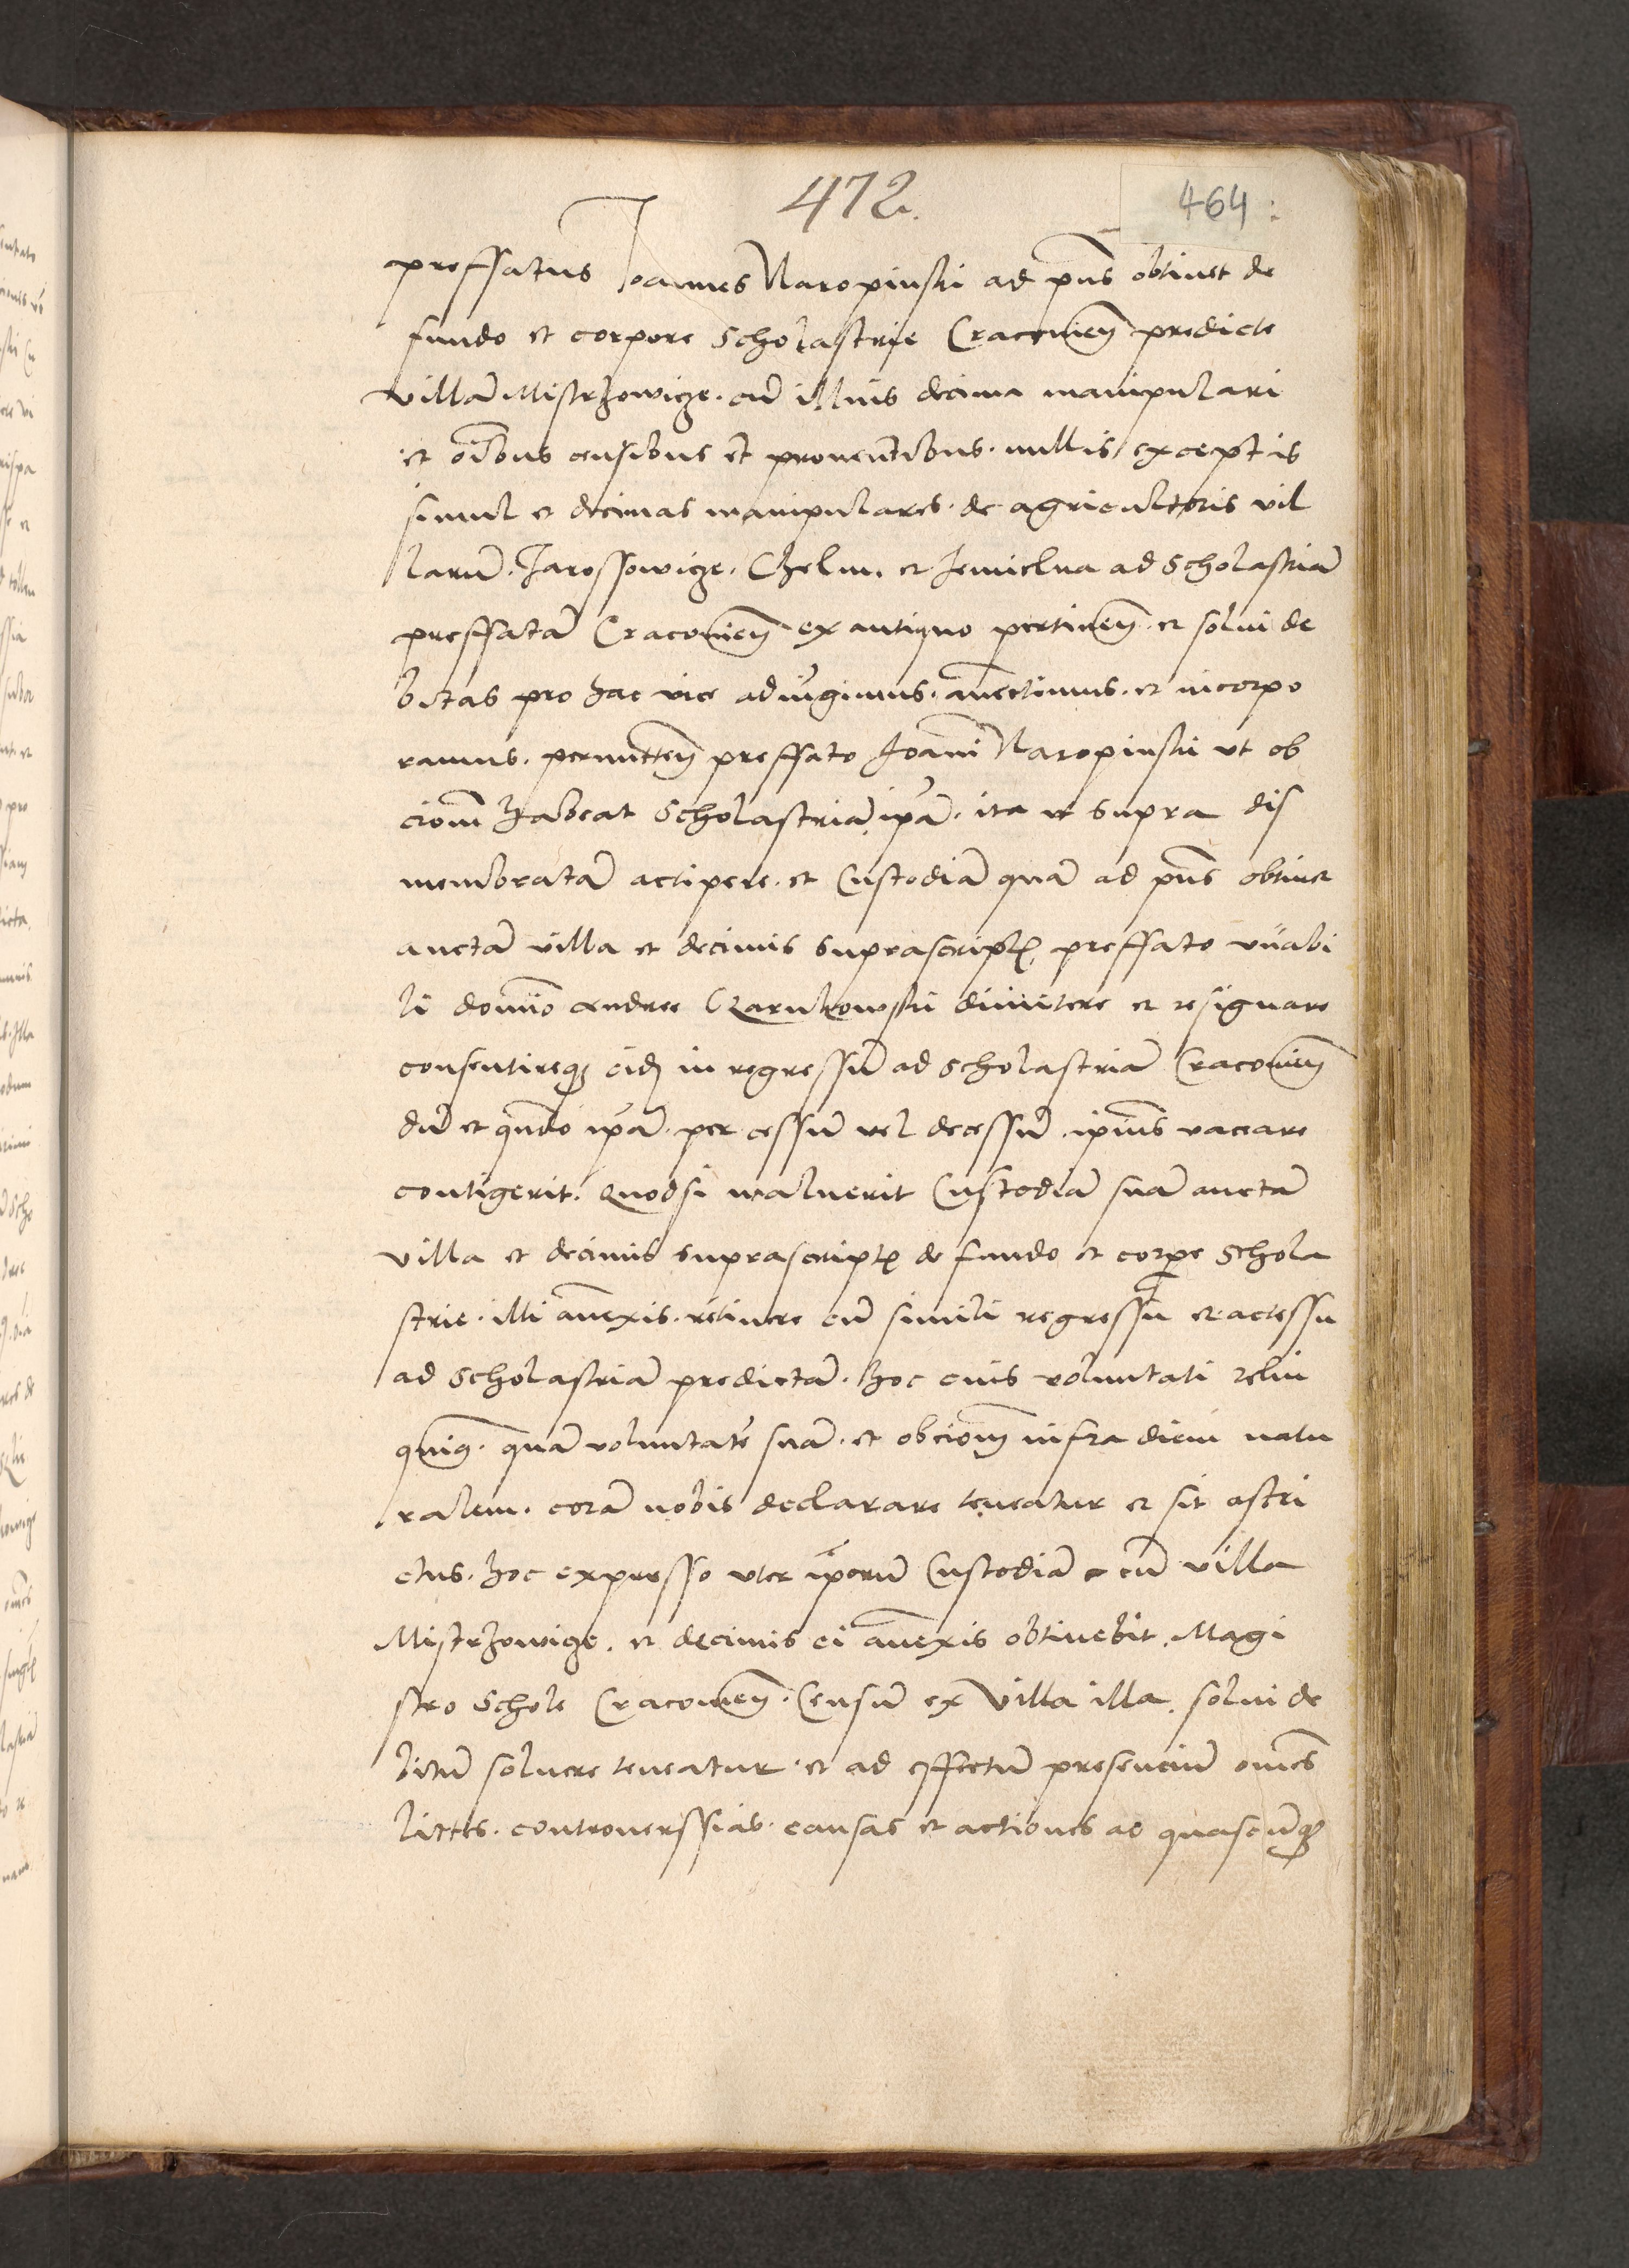 472.
464
preffatus Joannes Naropinski ad pñs obtinet de
fundo et corpore Scholastrie Cracovieñ predicte
villã Mistrzowicze. cũ illius decima manipulari
et oĩbus censibus et proventibus. nullis exceptis
simul et decimas manipulares. de agriculturis vil
larũ. Jarossowicze. Chelm. et Jemielna ad Scholastriã
preffatã Cracovieñ ex antiquo pertineñ. et solui de
bitas pro hac vice adiũgimus. ãnectimus. et incorpo
ramus. permitteñ preffato Joãni Naropinski vt ob
cionẽ habeat Scholastriã ipã. ita vt supra dis
membratã accipere. et Custodiã quã ad pñs obtinet
auctã villa et decimis suprascriptꝭ preffato vñabi
li domĩo Andree Czarnkowski dimittere et resignare
consentireqꝫ eidẽ in regressũ ad Scholastriã Cracovieñ
dũ et quãdo ipã. per cessũ vel decessũ. ipĩus vaccare
contigerit. Quodsi maluerit Custodiã suã auctã
villa et decimis suprascriptꝭ de fundo et corpe Schola
strie. illi ãnexis. retinere cũ simili regressu et accessu
ad Scholastriã predictã. hoc eius voluntati relin
quimꝰ. quã voluntatẽ suã. et obcionẽ infra diem natu
ralem. corã nobis declarare teneatur et sit astri
ctus. hoc expresso vter ipõrũ Custodiã cũ villa
Mistrzowicze. et decimis ei ãnexis obtinebit. Magi
stro Schole Cracovieñ. Censũ ex Villa illa. solui de
bitũ soluere teneatur. et ad effectũ presenciũ omẽs
littes. controverssias. causas et actiones ac quascũqꝫ